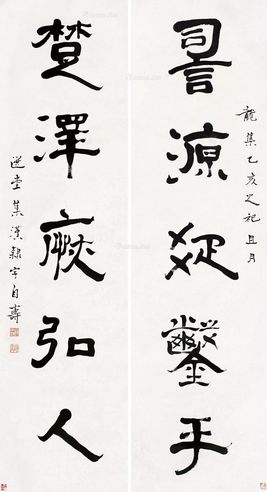 詞源疏鑿手
龍集乙亥之祀且月
楚澤弘人
堂集漢隸字自壽